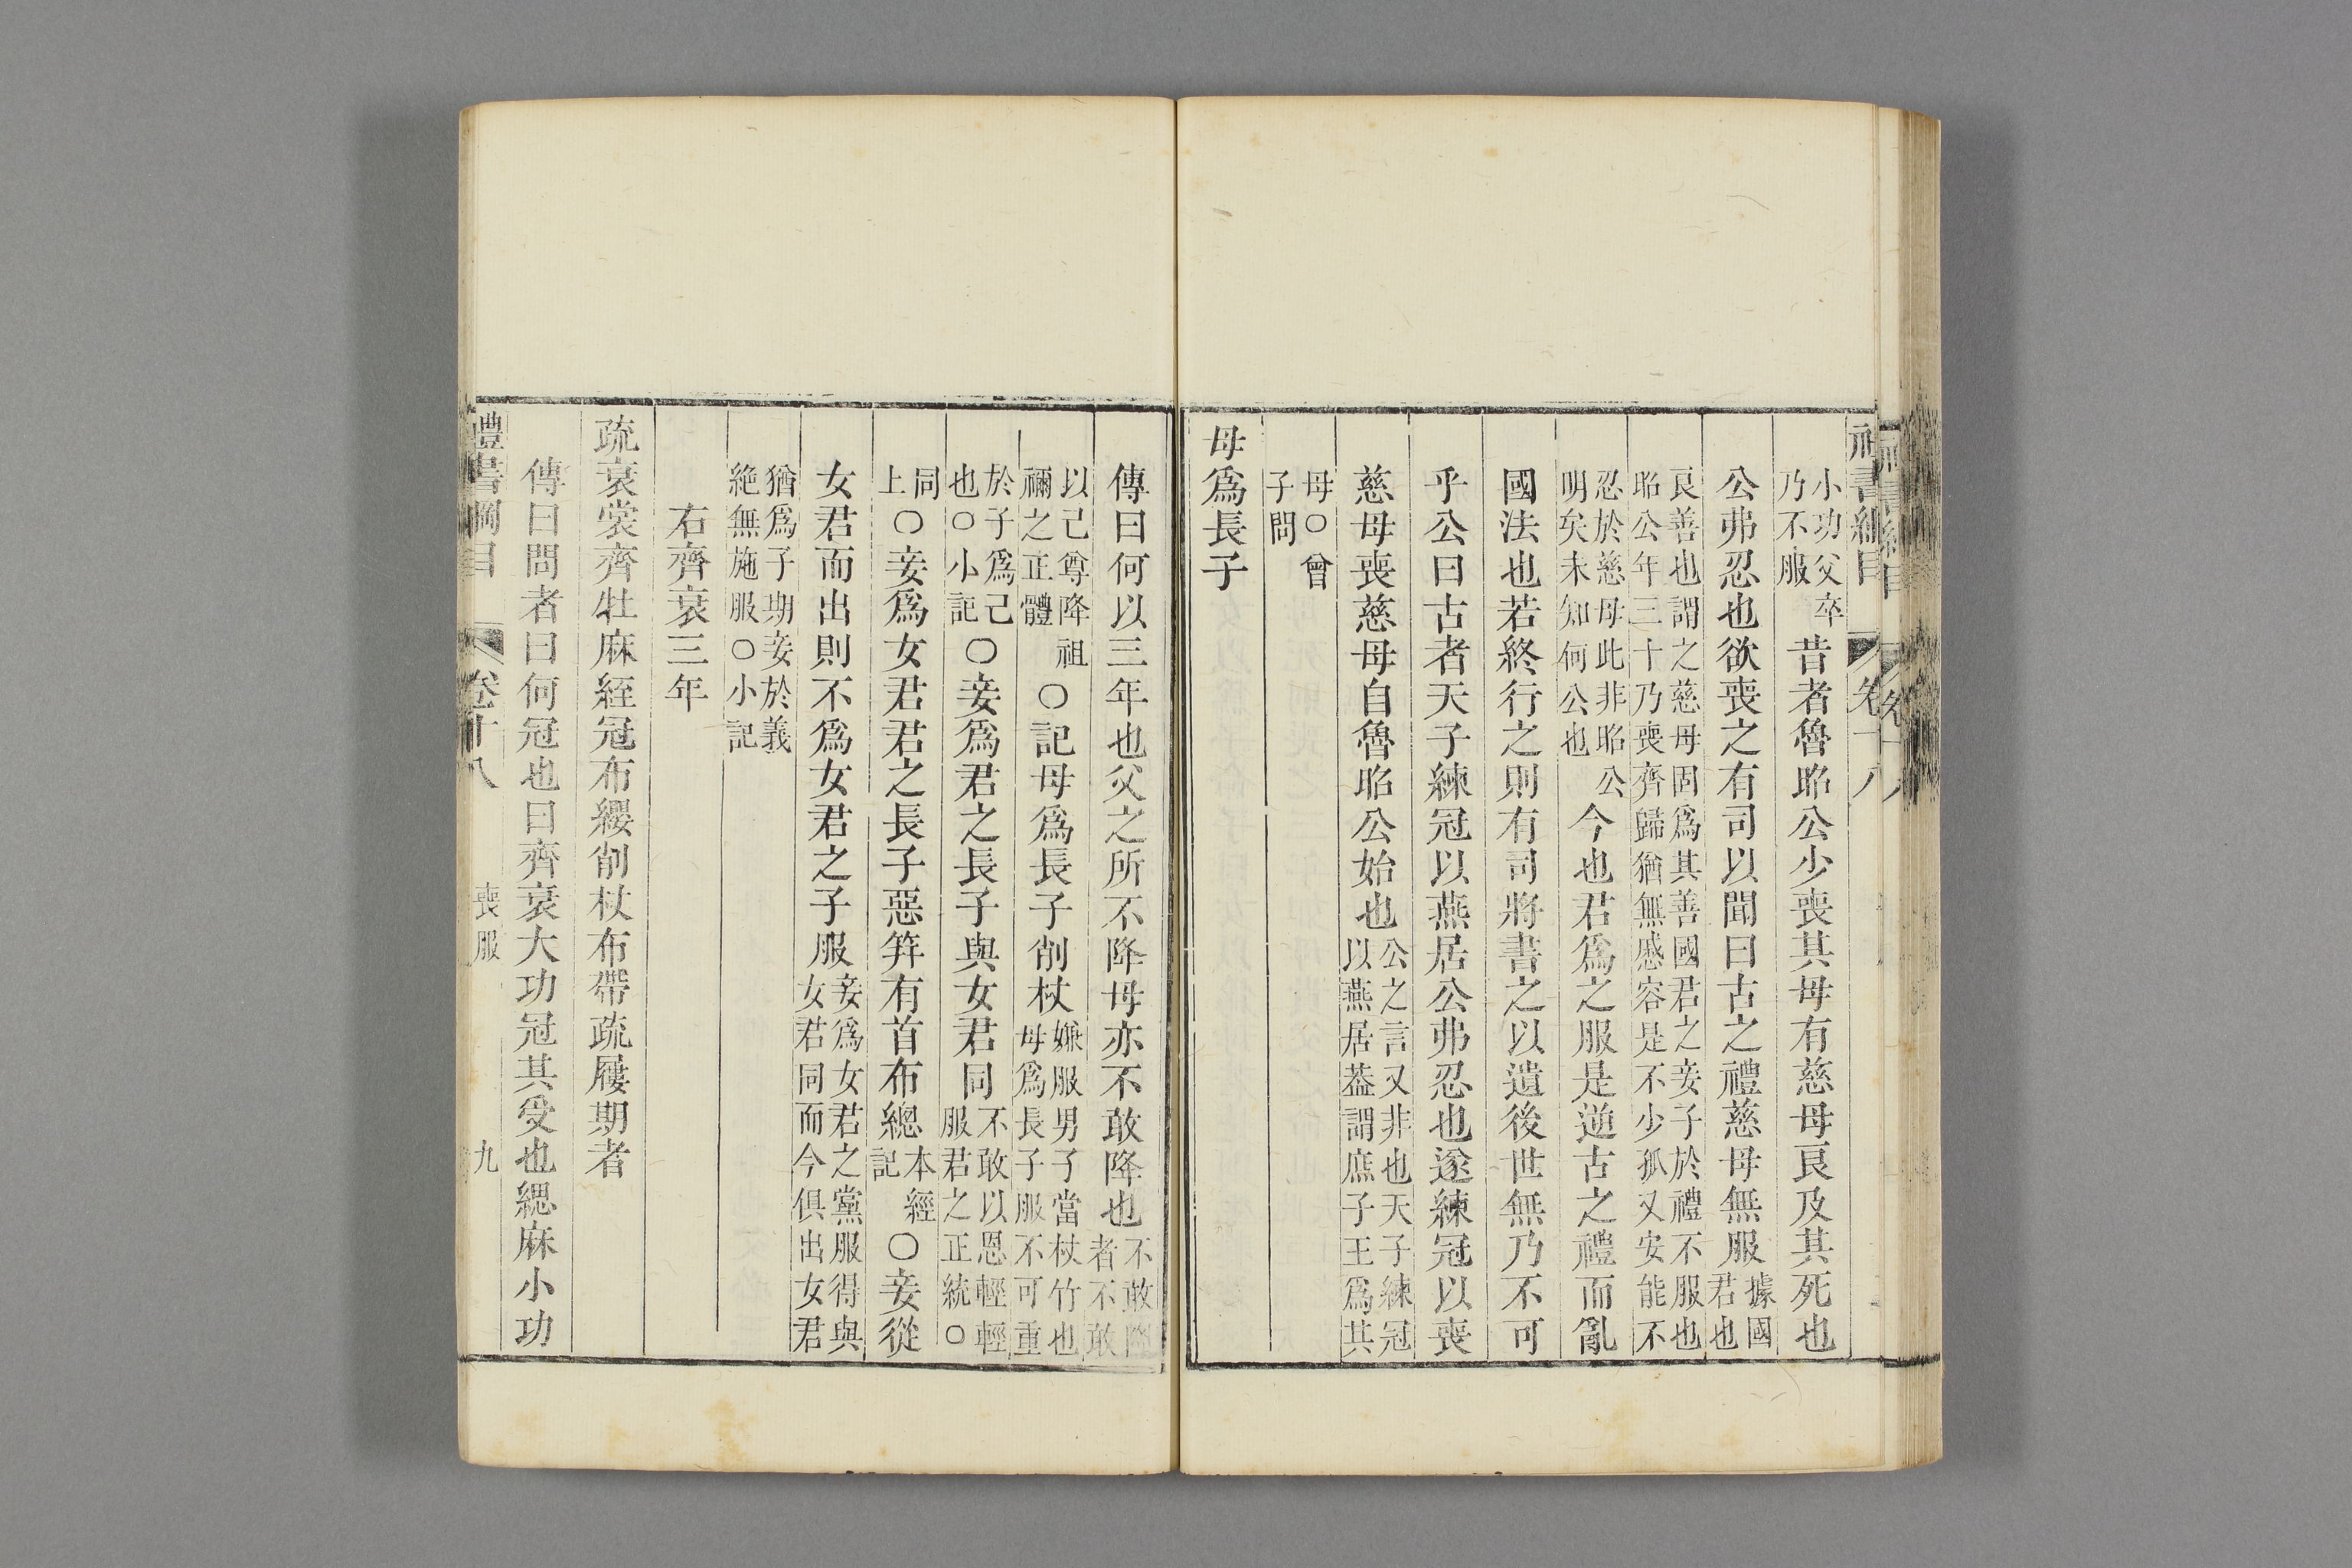 小功父卒乃不服昔者魯昭公少喪其母有慈母良及其死也
公弗忍也欲喪之有司以聞曰古之禮慈母無服據國君也
良善也謂之慈母固爲其善國君之妾子於禮不服也昭公年三十乃喪齊歸猶無慼容是不少孤又安能不
忍於慈母此非昭公明矣未知何公也今也君爲之服是逆古之禮而亂
國法也若終行之則有司將書之以遺後世無乃不可
乎公曰古者天子練冠以燕居公弗忍也遂練冠以喪
慈母喪慈母自魯昭公始也公之言又非也天子練冠以燕居葢謂庶子王爲其
母○曾子問
母爲長子
傳曰何以三年也父之所不降母亦不敢降也不敢降者不敢
以己尊降祖禰之正體○記母爲長子削杖嫌服男子當杖竹也母爲長子服不可重
於子爲己也○小記○妾爲君之長子與女君同不敢以恩輕輕服君之正統○
同上○妾爲女君君之長子惡笄有首布總本經記○妾從
女君而出則不爲女君之子服妾爲女君之黨服得與女君同而今俱出女君
猶爲子期妾於義絶無施服○小記
右齊衰三年
疏衰裳齊牡麻絰冠布纓削杖布帶疏屨期者
傳曰問者曰何冠也曰齊衰大功冠其受也緦麻小功
禮書綱目 卷十八 喪服 九